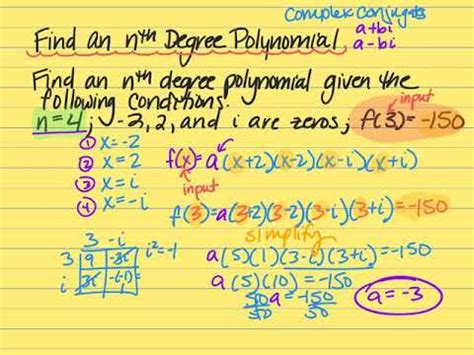 complex conjugates
a+bi
a-bi
Find an nth Degree Polynomial
Find an nth degree polynomial given the
following conditions.
input
n=4; -3,2, and i are zeros; f(3)=-150
① x=-2
② x=2
③ x=i
④ x=-i
f(x)=a(x+2)(x-2)(x-i)(x+i)
input
f(3)=a(3+2)(3-2)(3-i)(3+i)=-150
simplify
3 -i
3 9 -3i
i 3i -(-1)
i²=-1
a(5)(1)(3-i)(3+i)=-150
a(5)(10)=-150
50a=-150
50 50
a=-3